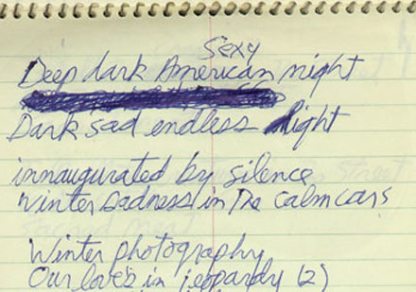 Sexy
Deep dark American night
Dark sad endless night
innaugurated by silence
winter sadness in the calm cars
Winter photography
Our love's in jeopardy (2)